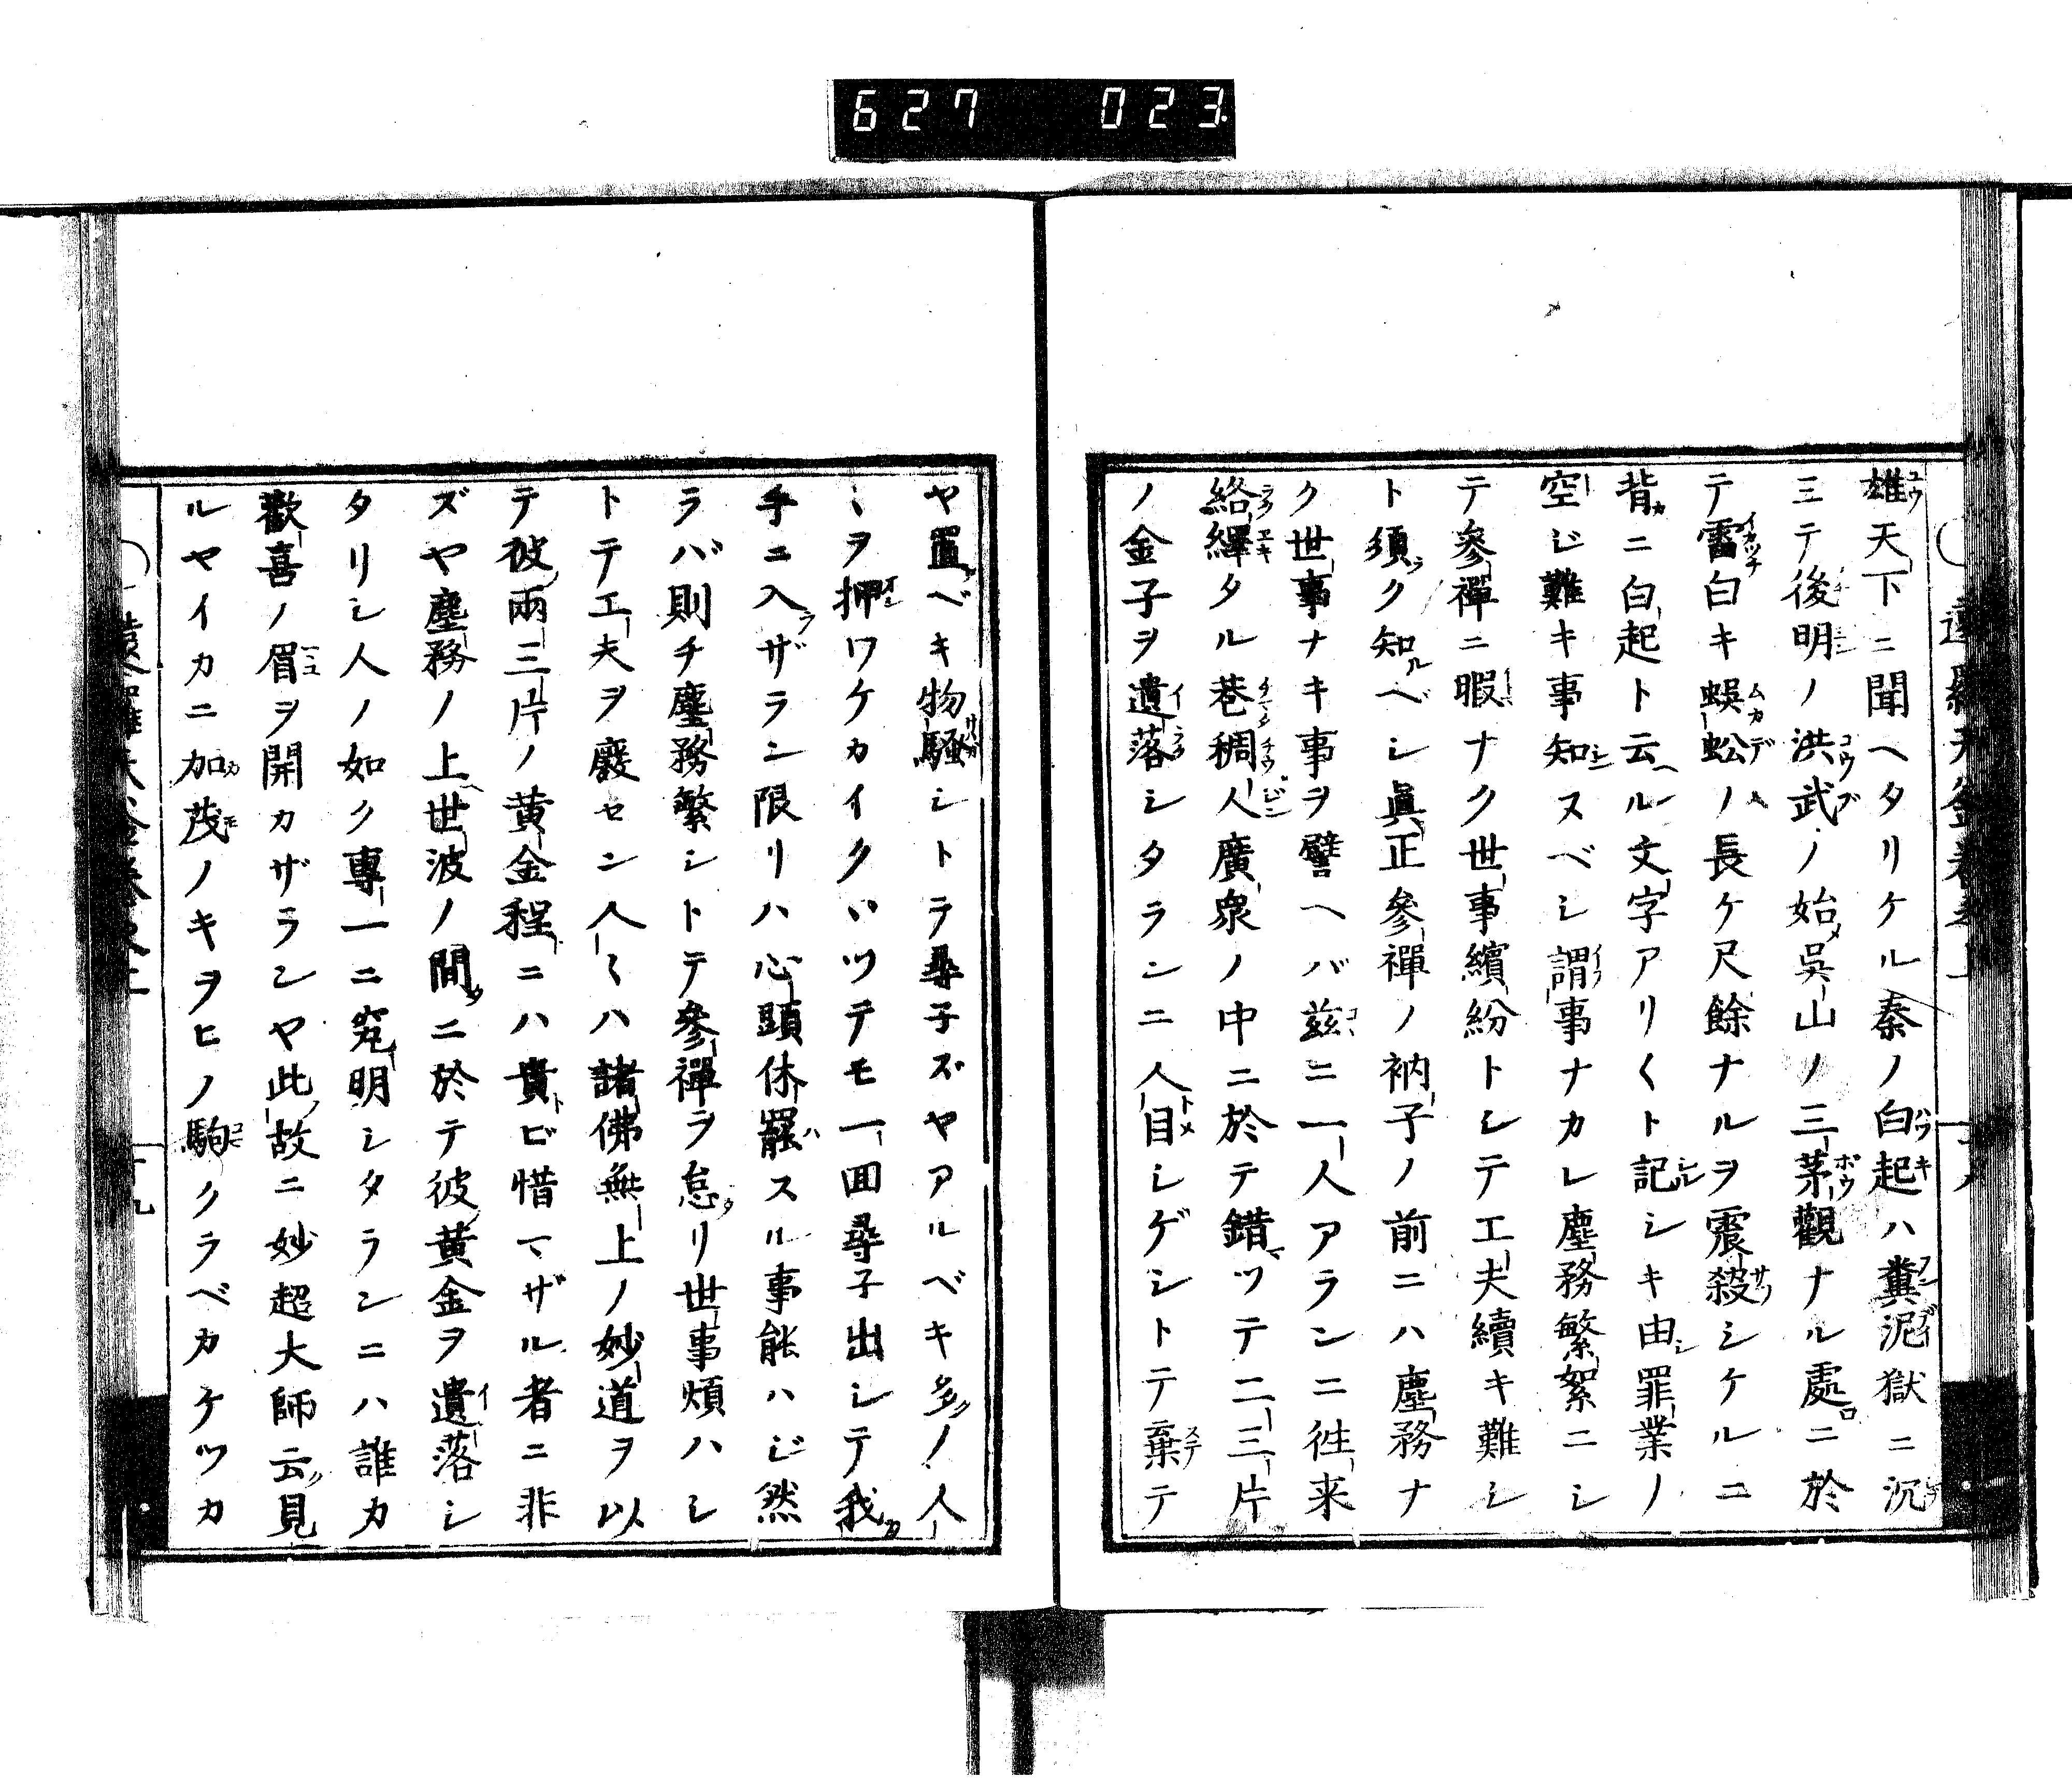 627 023
雄天下ニ聞ヘタリケル秦ノ白起ハ糞泥獄ニ沉
ミテ後明ノ洪武ノ始メ吳山ノ三茅觀ナル處ニ於
テ雷白キ蜈蚣ノ長ケ尺餘ナルヲ震殺シケルニ
背ニ白起ト云ヘル文字アリ〱ト記シキ由罪業ノ
空ジ難キ事知ヌベシ謂事ナカレ塵務繁絮ニシ
テ參禪ニ暇ナク世事繽紛トシテ工夫續キ難シ
ト須ラク知ルベシ眞正參禪ノ衲子ノ前ニハ塵務ナ
ク世事ナキ事ヲ譬ヘバ兹ニ一人アランニ徃来
絡繹タル巷稠人廣衆ノ中ニ於テ錯マツテ二三片
ノ金子ヲ遺落シタランニ人目シゲシトテ棄テ
ヤ置ベキ物騷シトテ尋子ズヤアルベキ多ノ人
〻ヲ押ワケカイクヾツテモ一回尋子出シテ我カ
手ニ入ラザラン限リハ心頭休罷スル事能ハジ然
ラバ則チ塵務繁シトテ參禪ヲ怠リ世事煩ハシ
トテ工夫ヲ廢セン人〱ハ諸佛無上ノ妙道ヲ以
テ彼兩三片ノ黄金程ニハ貴ビ惜マザル者ニ非
ズヤ塵務ノ上世波ノ間ニ於テ彼黄金ヲ遺落シ
タリシ人ノ如ク專一ニ究明シタランニハ誰カ
歡喜ノ眉ヲ開カザランヤ此故ニ妙超大師云見
ルヤイカニ加茂ノキヲヒノ駒クラベカケツカ